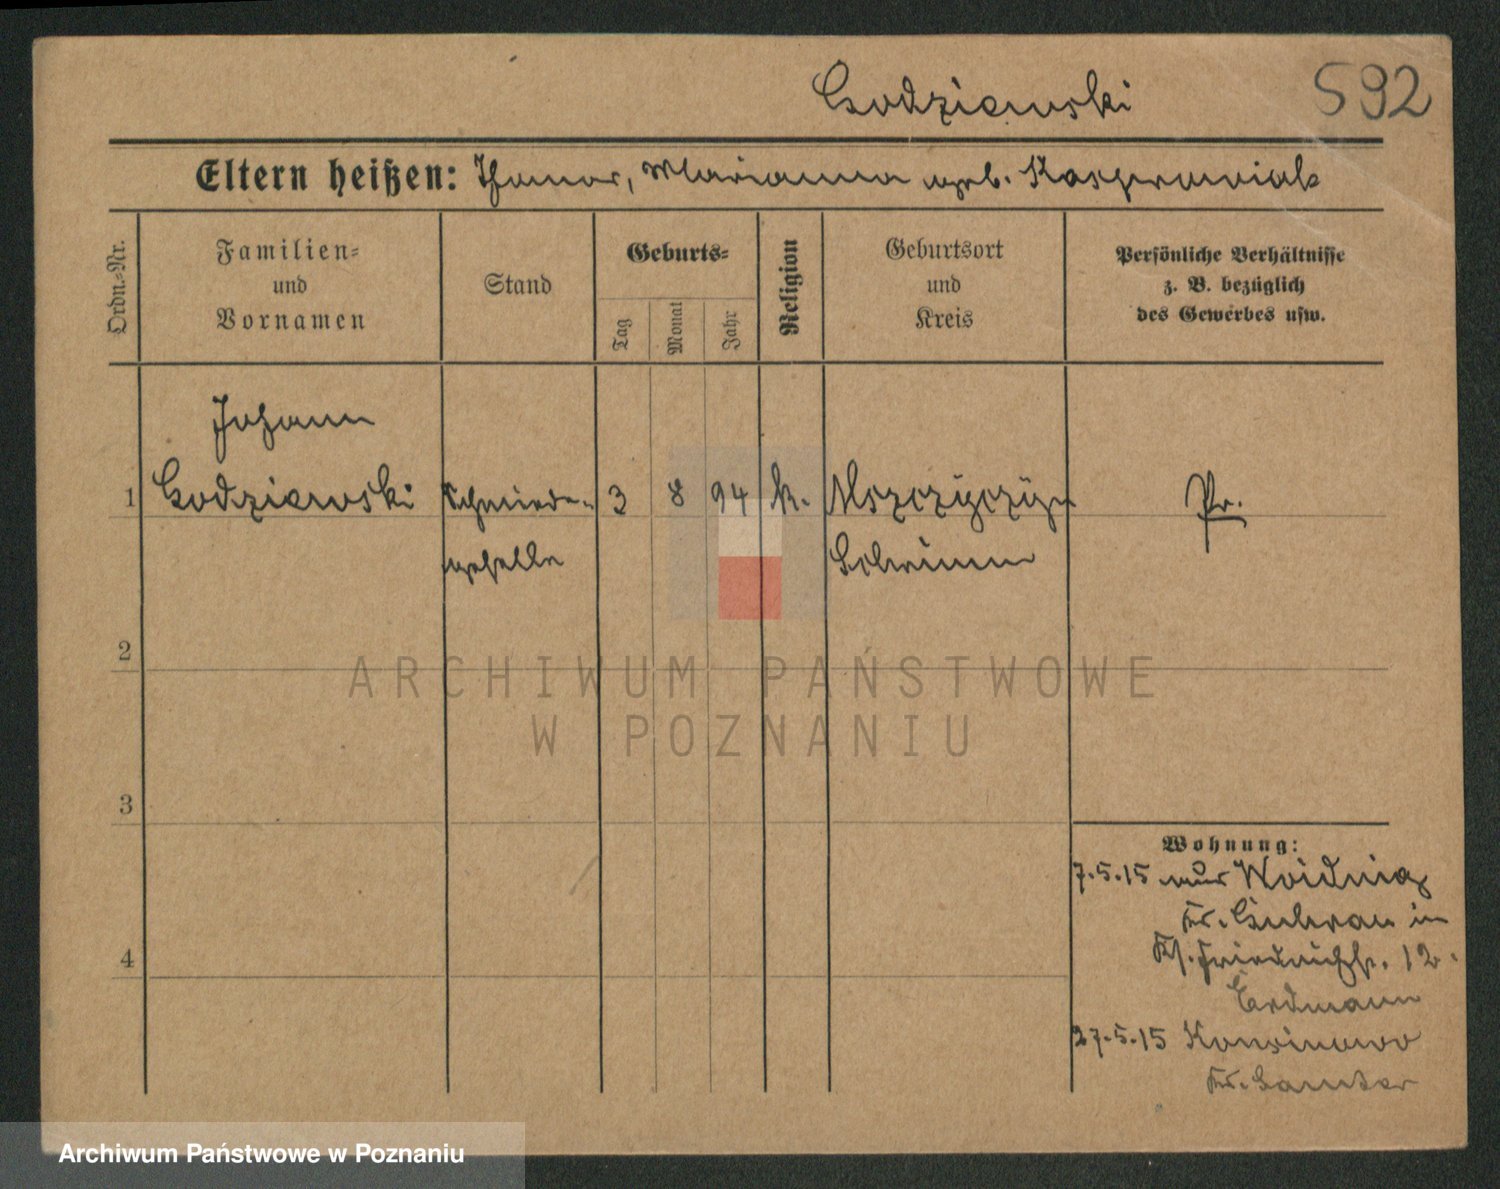 Godziewski
592
Eltern heißen: Thomas, Marianna geb. Kasprowiak
Ordn.-Nr.
Familien-
und
Vornamen
Stand
Geburts-
Tag
Monat
Jahr
Religion
Geburtsort
und
Kreis
Persönliche Verhältnisse
z. B. bezüglich
des Gewerbes usw.
Johann
1 Godziewski Schmiede- 3 8 94 k. Mszczyczyn Pr.
geselle Schrimm
2
ARCHIWUM PAŃSTWOWE
W POZNANIU
3
Wohnung:
7.5.15 aus Woidnig
Kr. Guhrau in
Friedrichstr. 12
4
Erdmann
27.5.15
Kr. Samter
Archiwum Państwowe w Poznaniu